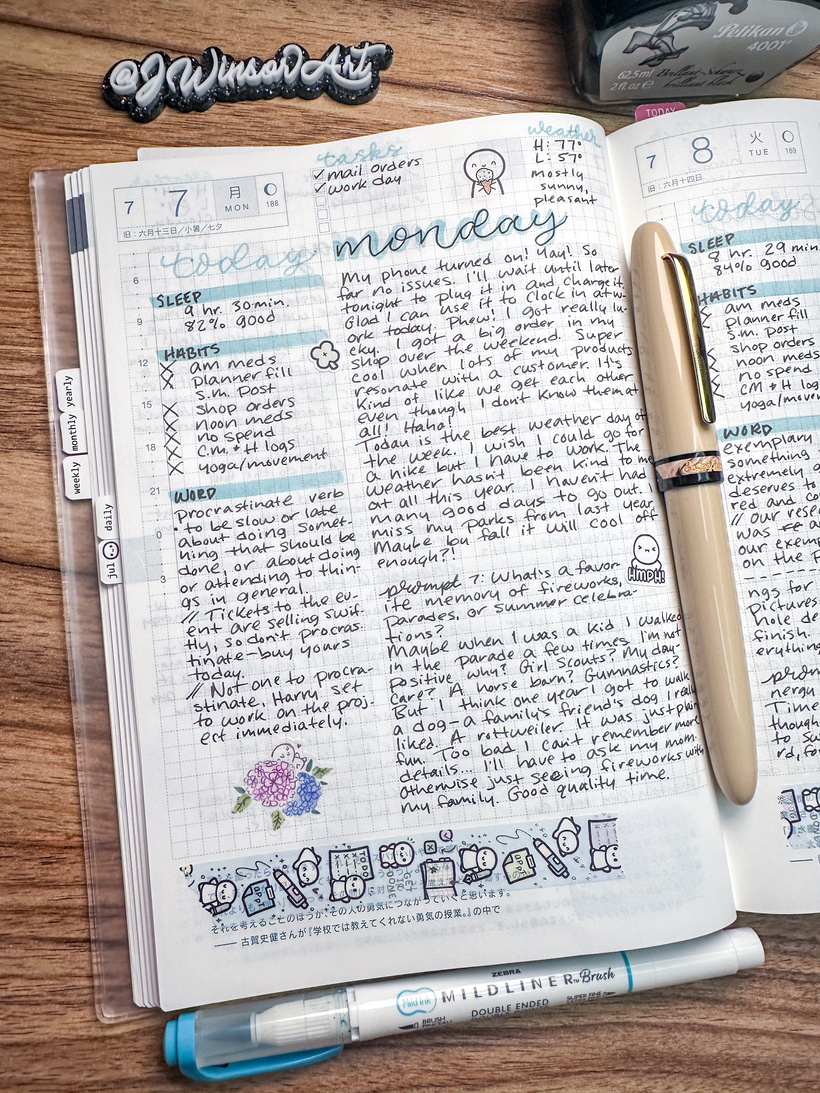 @JWinsorArt
Pelikan
4001
62.5ml Brillant-Schwarz
2 fl.oz brilliant black
TODAY
7 7 月 MON 188
旧:六月十三日/小暑/七夕
tasks
✓ mail orders
✓ work day
weather
H: 77°
L: 57°
mostly
sunny,
pleasant
today
SLEEP
9 hr. 30 min.
82% good
HABITS
am meds
planner fill
s.m. post
shop orders
noon meds
no spend
C.M. + H logs
yoga/movement
WORD
procrastinate verb
: to be slow or late
about doing somet-
hing that should be
done, or about doing
or attending to thin-
gs in general.
// Tickets to the ev-
ent are selling swif-
tly, so don't procras-
tinate—buy yours
today.
// Not one to procra-
stinate, Harry set
to work on the proj-
ect immediately.
monday
My phone turned on! Yay! So
far no issues. I'll wait until later
tonight to plug it in and charge it.
Glad I can use it to clock in at w-
ork today. Phew! I got really lu-
cky. I got a big order in my
shop over the weekend. Super
cool when lots of my products
resonate with a customer. It's
kind of like we get each other
even though I don't know them at
all! Haha!
Today is the best weather day of
the week. I wish I could go for
a hike but I have to work. The
weather hasn't been kind to me
at all this year. I haven't had
many good days to go out. I
miss my parks from last year.
Maybe by fall it will cool off
enough?!
HMPH!
prompt 7: What's a favor-
ite memory of fireworks,
parades, or summer celebra-
tions?
Maybe when I was a kid I walked
in the parade a few times. I'm not
positive why? Girl Scouts? My day-
care? A horse barn? Gymnastics?
But I think one year I got to walk
a dog—a family's friend's dog I really
liked. A rottweiler. It was just plain
fun. Too bad I can't remember more
details... I'll have to ask my mom.
Otherwise just seeing fireworks with
my family. Good quality time.
6
9
12
15
18
21
0
3
yearly
monthly
weekly
daily
jul
それを考えることのほうが、その人の勇気につながっていくと思います。
—— 古賀史健さんが『学校では教えてくれない勇気の授業。』の中で
7 8 火 TUE 189
旧:六月十四日
today
SLEEP
8 hr. 29 min.
84% good
HABITS
am meds
planner fill
s.m. post
shop orders
noon meds
no spend
CM + H log
yoga/movem
WORD
exemplary
something
extremely g
deserves to
red and co
// Our rese
was
our exemp
on the p
ngs for
pictures
hole de
finish.
erythin
prom
nergy
Time
though
to su
rd, fo
ZEBRA
Mild ink MILDLINER™ Brush
DOUBLE ENDED
BRUSH
SUPER FINE